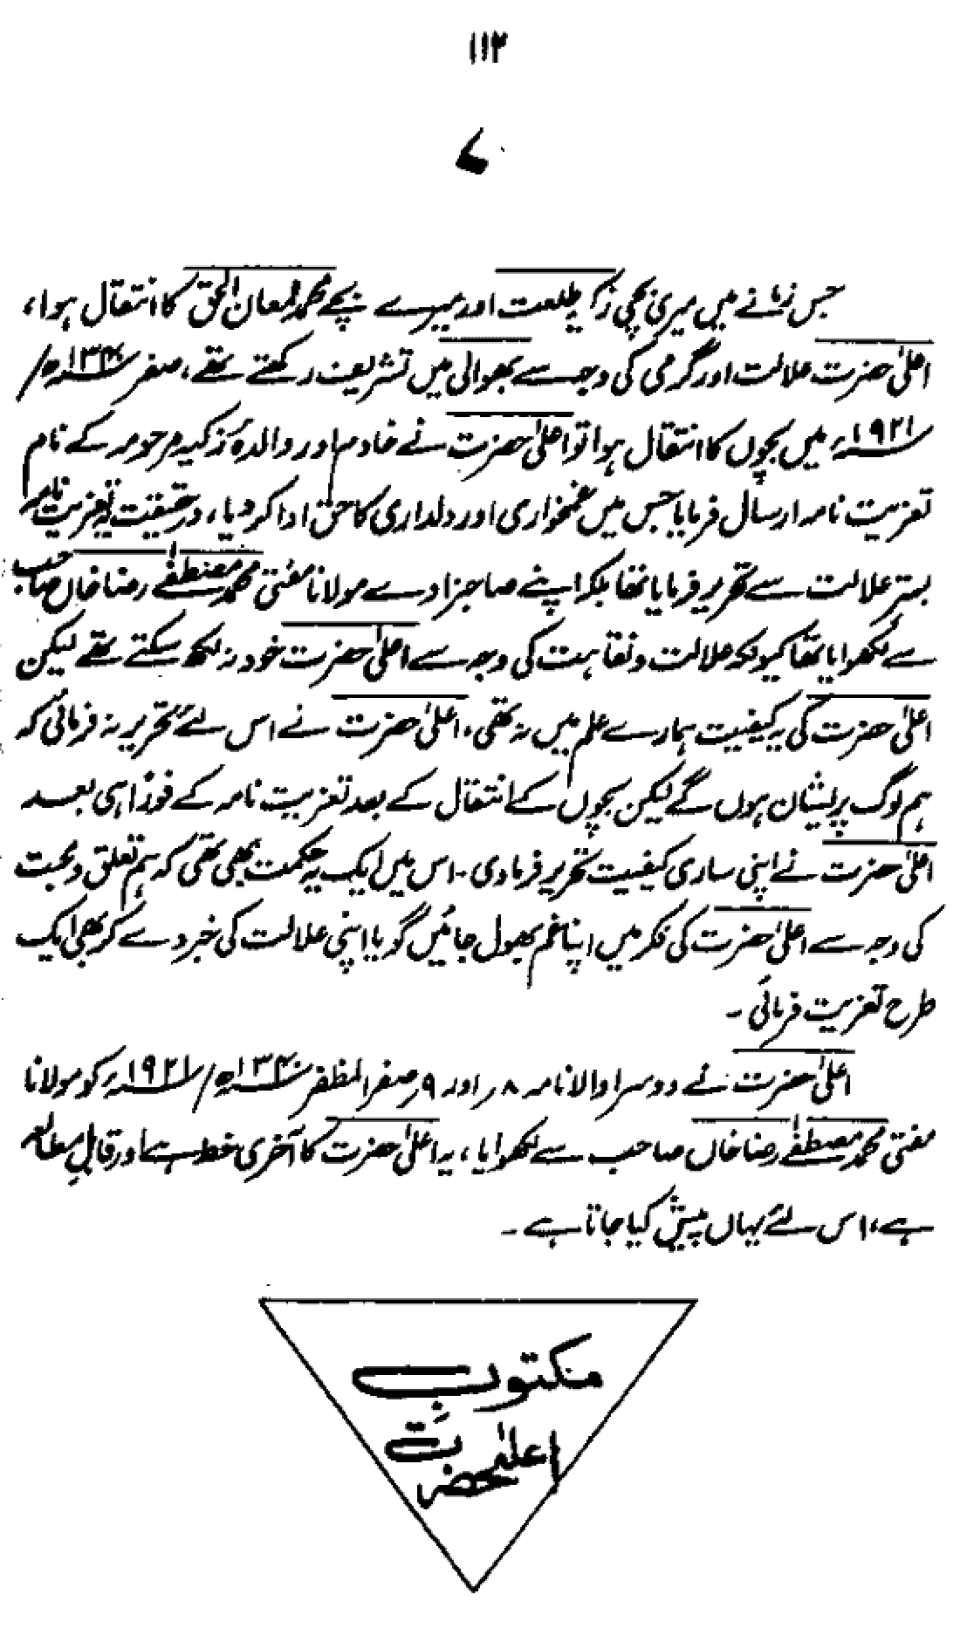 ۱۱۲
۷
جس زمانے میں میری بچی زکیہ طلعت اور میرے بچے محمد لمعان الحق کا انتقال ہوا،
اعلیٰ حضرت علالت اور گرمی کی وجہ سے بھوالی میں تشریف رکھتے تھے، صفر ۱۳۴۰ھ/
۱۹۲۱ء میں بچوں کا انتقال ہوا تو اعلیٰ حضرت نے خادم اور والدہ زکیہ مرحومہ کے نام
تعزیت نامہ ارسال فرمایا جس میں غمخواری اور دلداری کا حق ادا کر دیا، درحقیقت یہ تعزیت نامہ
بستر علالت سے تحریر فرمایا تھا بلکہ اپنے صاحبزادے مولانا مفتی محمد مصطفےٰ رضا خاں صاحب
سے لکھوایا تھا کیونکہ علالت و نقاہت کی وجہ سے اعلیٰ حضرت خود نہ لکھ سکتے تھے لیکن
اعلیٰ حضرت کی یہ کیفیت ہمارے علم میں نہ تھی، اعلیٰ حضرت نے اس لئے تحریر نہ فرمائی کہ
ہم لوگ پریشان ہوں گے لیکن بچوں کے انتقال کے بعد تعزیت نامہ کے فوراً ہی بعد
اعلیٰ حضرت نے اپنی ساری کیفیت تحریر فرما دی۔ اس میں ایک یہ حکمت بھی تھی کہ ہم تعلق و محبت
کی وجہ سے اعلیٰ حضرت کی فکر میں اپنا غم بھول جائیں گویا اپنی علالت کی خبر دے کر بھی ایک
طرح تعزیت فرمائی۔
اعلیٰ حضرت نے دوسرا والا نامہ ۸ر اور ۹ر صفر المظفر ۱۳۴۰ھ/ ۱۹۲۱ء کو مولانا
مفتی محمد مصطفےٰ رضا خاں صاحب سے لکھوایا، یہ اعلیٰ حضرت کا آخری خط ہے اور قابلِ مطالعہ
ہے، اس لئے یہاں پیش کیا جاتا ہے۔
مکتوبِ
اعلیٰحضرت